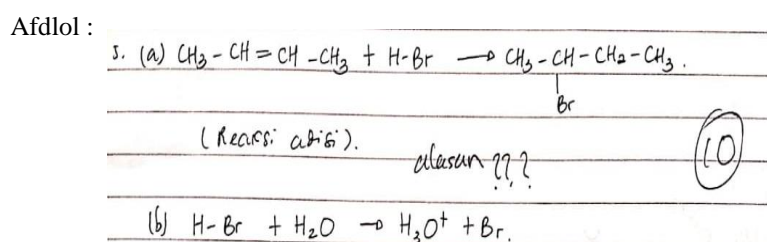 Afdlol :
5. (a) CH3 - CH = CH - CH3 + H-Br → CH3 - CH - CH2 - CH3.
Br
(Reaksi adisi).
alasan ???
10
(b) H-Br + H2O → H3O+ + Br.